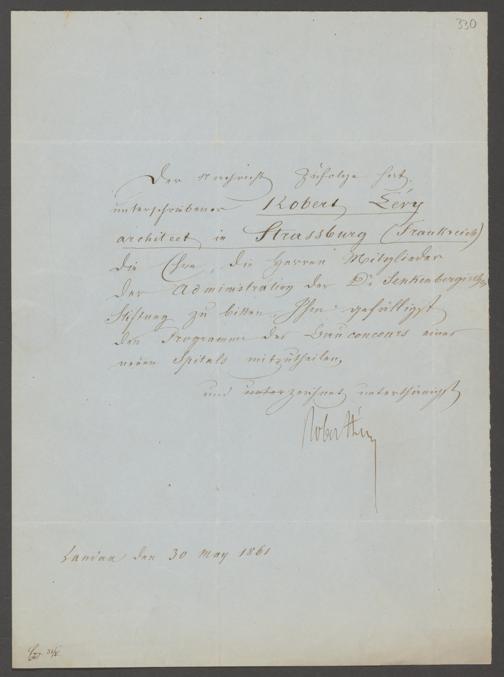 330
Der Nachricht zufolge hat
unterschriebener Robert Lévy
architect in Strassburg (Frankreich)
die Ehre, die Herren Mitglieder
der Administration der Dr Senkenbergischen
Stiftung zu bitten Ihm gefälligst
den Programm des Bauconcours eines
neuen Spitals mitzutheilen,
und unterzeichnet unterthänigst
Robert Lévy
Landau den 30 May 1861